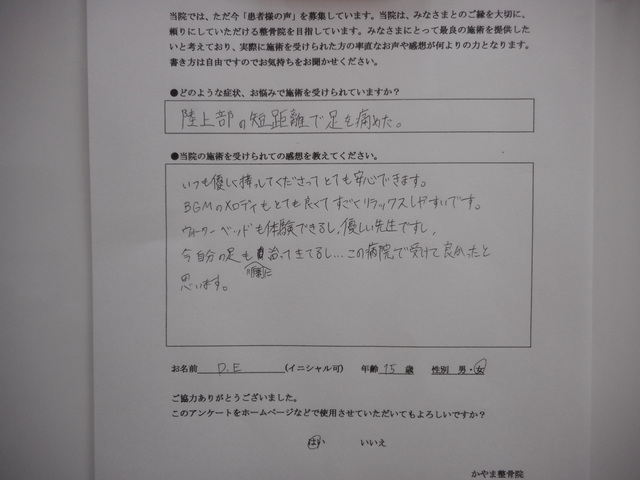 当院では、ただ今「患者様の声」を募集しています。当院は、みなさまとのご縁を大切に、
頼りにしていただける整骨院を目指しています。みなさまにとって最良の施術を提供した
いと考えており、実際に施術を受けられた方の率直なお声や感想が何よりの力となります。
書き方は自由ですのでお気持ちをお聞かせください。
●どのような症状、お悩みで施術を受けられていますか？
陸上部の短距離で足を痛めた。
●当院の施術を受けられての感想を教えてください。
いつも優しく接してくださってとても安心できます。
BGMのメロディもとても良くてすごくリラックスしやすいです。
ウォーターベッドも体験できるし、優しい先生ですし、
今自分の足も順調に治ってきてるし…この病院で受けて良かったと
思います。
お名前 D.E (イニシャル可) 年齢 15 歳 性別 男・女
ご協力ありがとうございました。
このアンケートをホームページなどで使用させていただいてもよろしいですか？
はい いいえ
かやま整骨院